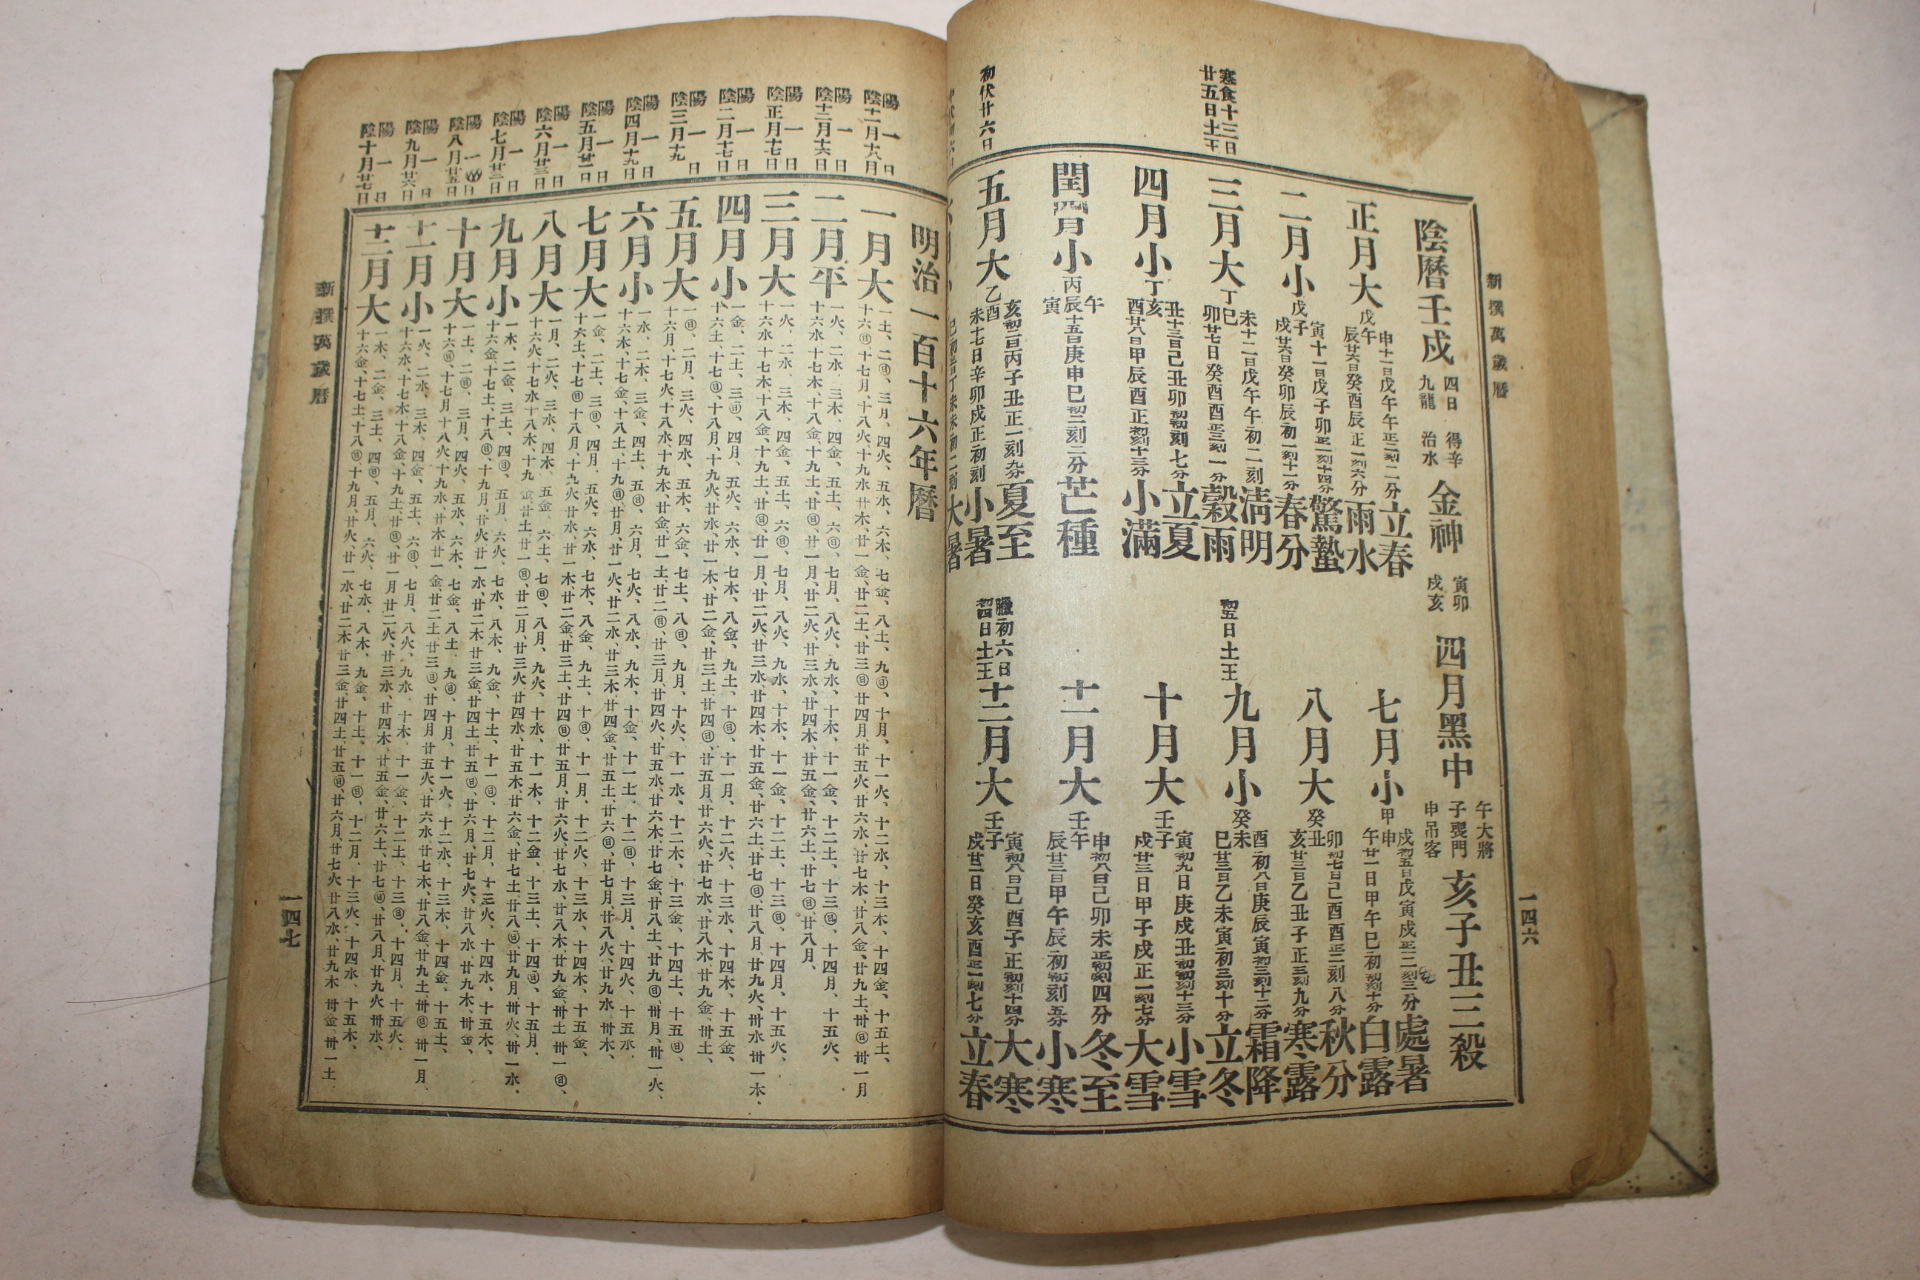 新撰萬歲曆
一四六
陰曆壬戌 四日得辛 九龍治水 金神 寅卯戌亥 四月黑中 午大將 子喪門 申吊客 亥子丑三殺
正月大 戊午 申十一日戊午午正二刻二分 立春
辰廿六日癸酉辰正一刻六分 雨水
二月小 戊子 寅十一日戊子卯正一刻十四分 驚蟄
戌廿六日癸卯辰初一刻十一分 春分
寒食十三日
廿五日土王
三月大 丁巳 未十二日戊午午初二刻 淸明
卯廿七日癸酉酉正三刻一分 穀雨
四月小 丁亥 丑十三日己丑卯初初刻七分 立夏
酉廿八日甲辰酉正初刻十三分 小滿
閏四月小 丙辰 午
寅十五日庚申巳初二刻二分 芒種
初伏廿六日
五月大 乙酉 亥初二日丙子丑正一刻九分 夏至
未十七日辛卯戌正初刻 小暑
大暑
七月小 甲申 戌初五日戊寅戌正二刻三分 處暑
午廿一日甲午巳初初刻十分 白露
八月大 癸丑 卯初七日己酉酉正二刻八分 秋分
亥廿二日乙丑子正三刻九分 寒露
初五日土王
九月小 癸未 酉初八日庚辰寅初三刻十二分 霜降
巳廿三日乙未寅初三刻十分 立冬
十月大 壬子 寅初九日庚戌丑初初刻十三分 小雪
戌廿三日甲子戌正一刻七分 大雪
十一月大 壬午 申初八日己卯未正初刻四分 冬至
辰廿三日甲午辰初初刻五分 小寒
臘初六日
初四日土王
十二月大 壬子 寅初八日己酉子正初刻十四分 大寒
戌廿二日癸亥酉正一刻七分 立春
明治一百十六年曆
陽一日
陰十一月十八日
一月大 一土、二㊐、三月、四火、五水、六木、七金、八土、九㊐、十月、十一火、十二水、十三木、十四金、十五土、
十六㊐、十七月、十八火十九水、廿木廿一金、廿二土、廿三㊐、廿四月廿五火廿六水、廿七木、廿八金、廿九土、卅㊐卅一月
陽一日
陰十二月十六日
二月平 一火、二水、三木、四金、五土、六㊐、七月、八火、九水、十木、十一金、十二土、十三㊐、十四月、十五火、
十六水十七木十八金、十九土、廿㊐、廿一月、廿二火、廿三水、廿四木、廿五金、廿六土、廿七㊐、廿八月、
陽一日
陰正月十七日
三月大 一火、二水、三木、四金、五土、六㊐、七月、八火、九水、十木、十一金、十二土、十三㊐、十四月、十五火、
十六水十七木十八金、十九土、廿㊐、廿一月、廿二火、廿三水廿四木、廿五金、廿六土、廿七㊐、廿八月、廿九火、卅水卅一木、
陽一日
陰二月十七日
四月小 一金、二土、三㊐、四月、五火、六水、七木、八金、九土、十㊐、十一月、十二火、十三水、十四木、十五金、
十六土、十七㊐、十八月、十九火、廿水、廿一木、廿二金、廿三土、廿四㊐、廿五月廿六火、廿七水、廿八木廿九金、卅土、
陽一日
陰三月十九
五月大 一㊐、二月、三火、四水、五木、六金、七土、八㊐、九月、十火、十一水、十二木、十三金、十四土、十五㊐、
十六月、十七火、十八水、十九木、廿金、廿一土廿二㊐、廿三月、廿四火、廿五水、廿六木、廿七金、廿八土、廿九㊐、卅月、卅一火、
陽一日
陰四月十九日
六月小 一水、二木、三金、四土、五㊐、六月、七火、八水、九木、十金、十一土、十二㊐、十三月、十四火、十五水、
十六木、十七金、十八土、十九㊐、廿月、廿一火、廿二水、廿三木、廿四金、廿五土、廿六㊐、廿七月、廿八火、廿九水、卅木、
陽一日
陰五月廿一日
七月大 一金、二土、三㊐、四月、五火、六水、七木、八金、九土、十㊐、十一月、十二火、十三水、十四木、十五金、
十六土、十七㊐、十八月、十九火、廿水、廿一木、廿二金、廿三土、廿四㊐、廿五月、廿六火、廿七水、廿八木廿九金、卅土卅一㊐、
陽一日
陰六月廿三日
八月大 一月、二火、三水、四木、五金、六土、七㊐、八月、九火、十水、十一木、十二金、十三土、十四㊐、十五月、
十六火十七水十八木、十九金、廿土廿一㊐、廿二月、廿三火、廿四水、廿五木、廿六金、廿七土、廿八㊐、廿九月、卅火、卅一水、
陽一日
陰七月廿三日
九月小 一木、二金、三土、四㊐、五月、六火、七水、八木、九金、十土、十一㊐、十二月、十三火、十四水、十五木、
十六金、十七土、十八㊐、十九月、廿火、廿一水、廿二木、廿三金、廿四土、廿五㊐、廿六月、廿七火、廿八水、廿九木、卅金、
陽一日
陰八月廿五日
十月大 一土、二㊐、三月、四火、五水、六木、七金、八土、九㊐、十月、十一火、十二水、十三木、十四金、十五土、
十六㊐、十七月十八火十九水、廿木、廿一金、廿二土、廿三㊐、廿四月、廿五火、廿六水、廿七木、廿八金、廿九土、卅㊐卅一月、
陽一日
陰九月廿六日
十一月小 一火、二水、三木、四金、五土、六㊐、七月、八火、九水、十木、十一金、十二土、十三㊐、十四月、十五火、
十六水、十七木、十八金、十九土、廿㊐、廿一月、廿二火、廿三水、廿四木、廿五金、廿六土、廿七㊐、廿八月、廿九火、卅水、
陽一日
陰十月廿七日
十二月大 一木、二金、三土、四㊐、五月、六火、七水、八木、九金、十土、十一㊐、十二月、十三火、十四水、十五木、
十六金、十七土、十八㊐、十九月、廿火、廿一水、廿二木、廿三金、廿四土、廿五㊐、廿六月、廿七火、廿八水、廿九木、卅金、卅一土
新撰萬歲曆
一四七